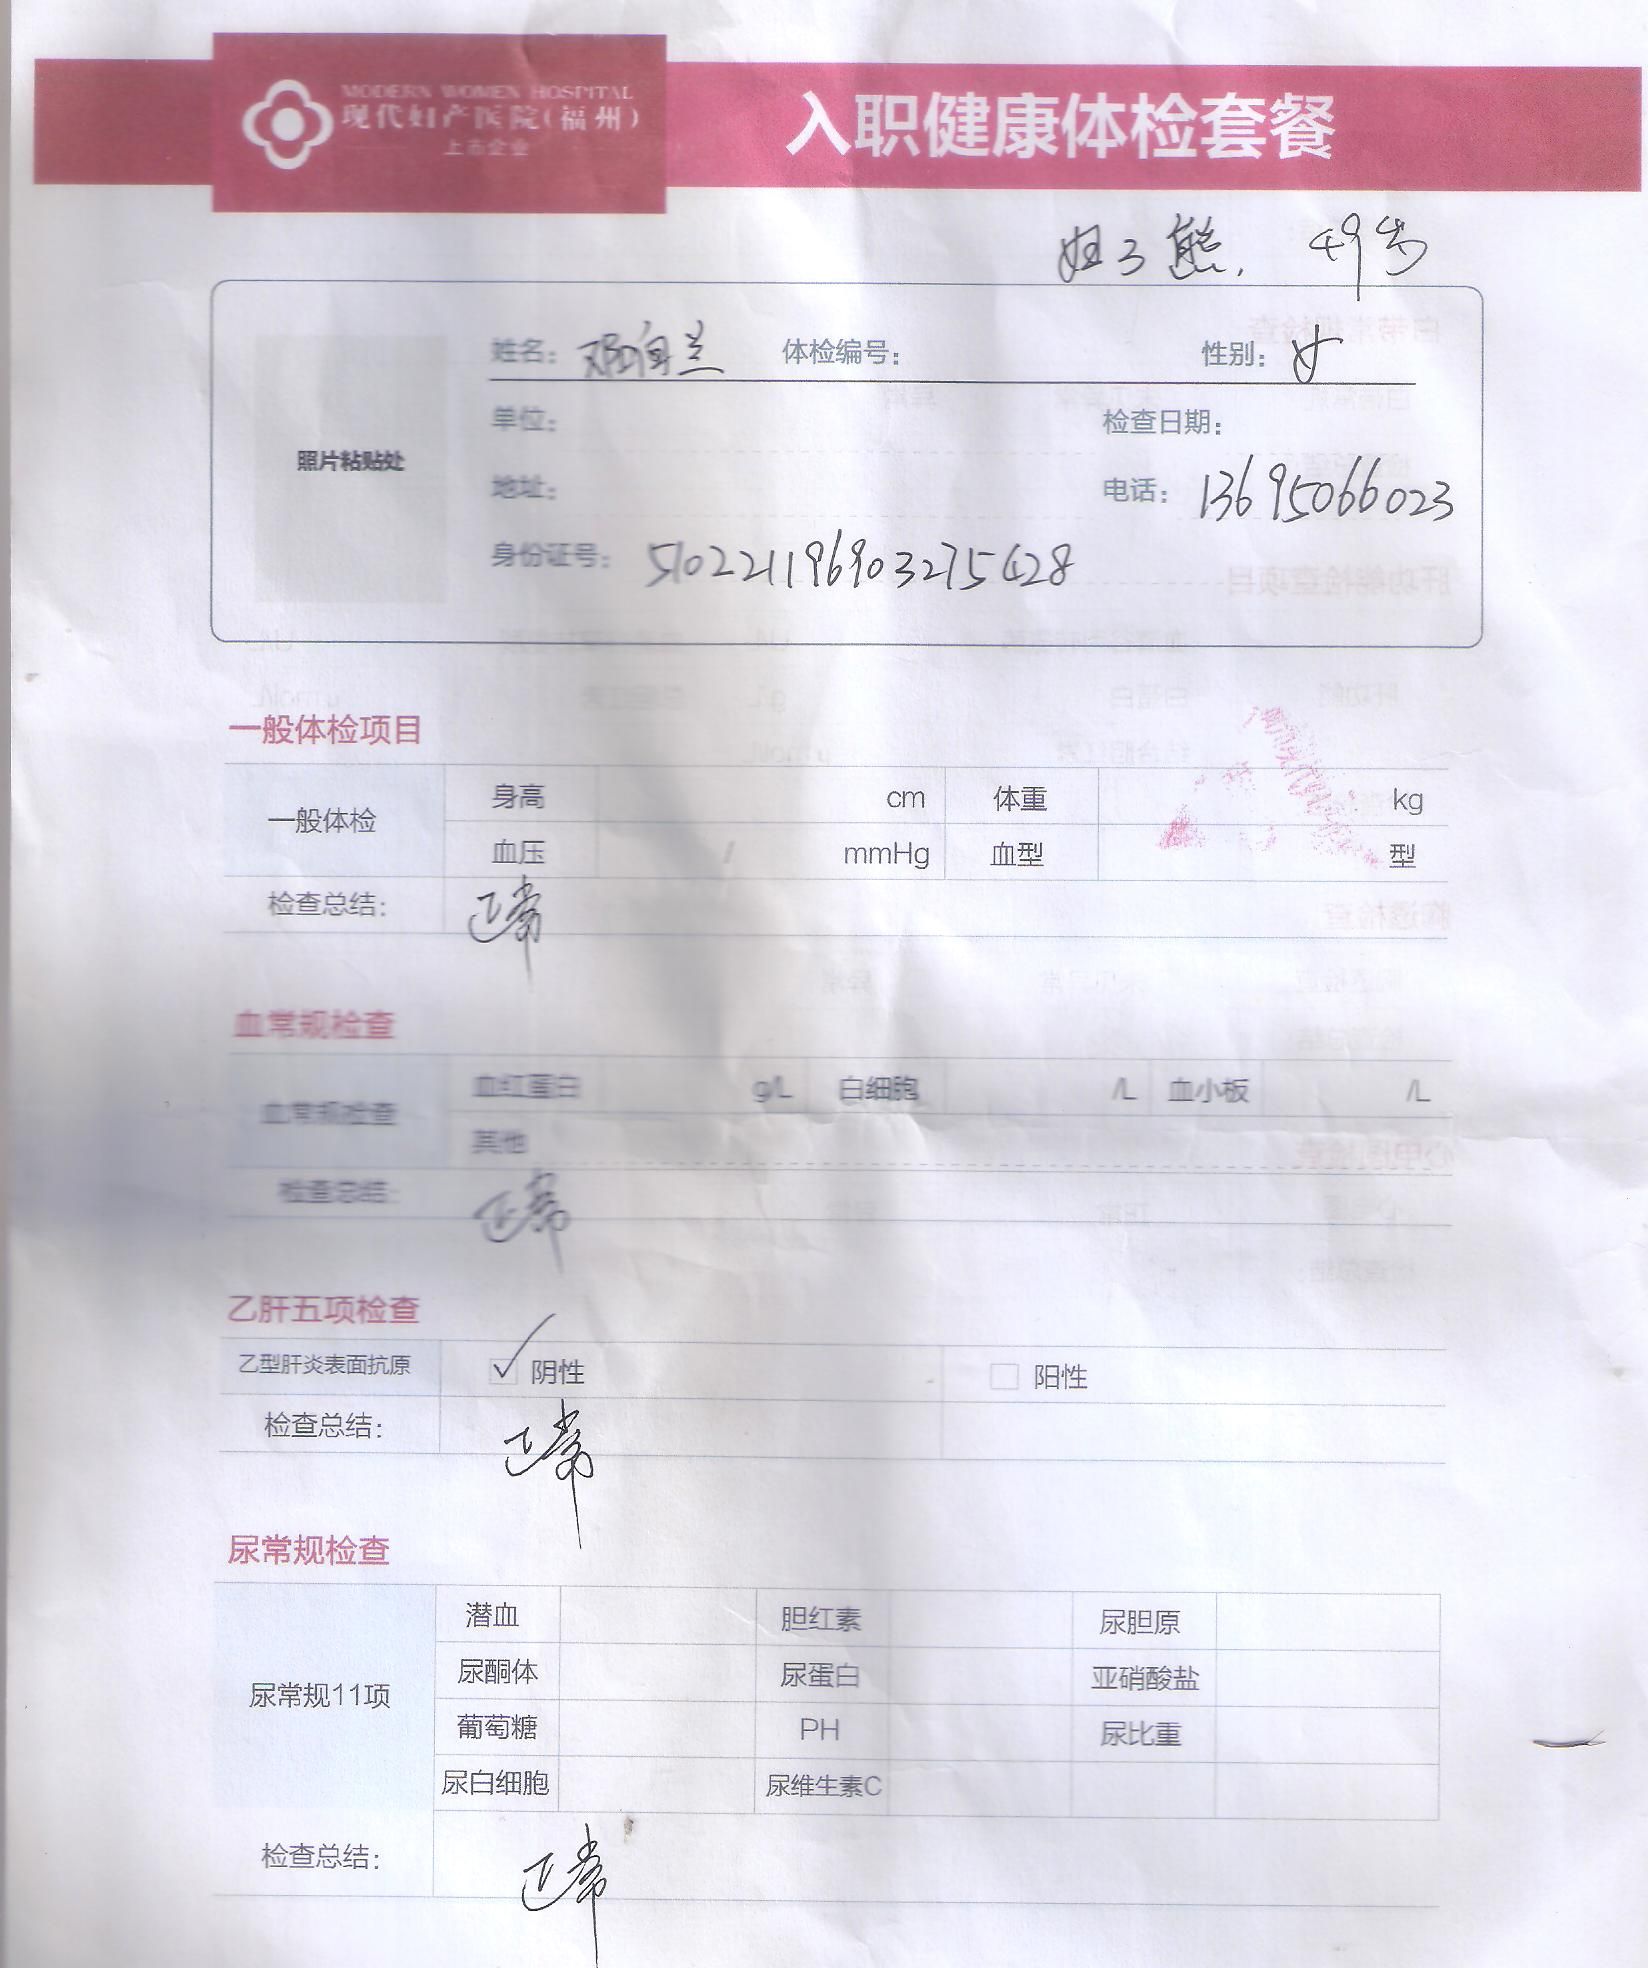 MODERN WOMEN HOSPITAL
现代妇产医院(福州)
上市企业
入职健康体检套餐
熊. 49岁
姓名: 邓自兰 体检编号: 性别: 女
单位: 检查日期:
照片粘贴处
地址: 电话: 13695066023
身份证号: 510221196903275428
一般体检项目
一般体检 身高 cm 体重 kg
血压 / mmHg 血型 型
检查总结: 正常
血常规检查
血常规检查 血红蛋白 g/L 白细胞 /L 血小板 /L
其他
检查总结: 正常
乙肝五项检查
乙型肝炎表面抗原 ✓ 阴性 □ 阳性
检查总结: 正常
尿常规检查
尿常规11项 潜血 胆红素 尿胆原
尿酮体 尿蛋白 亚硝酸盐
葡萄糖 PH 尿比重
尿白细胞 尿维生素C
检查总结: 正常